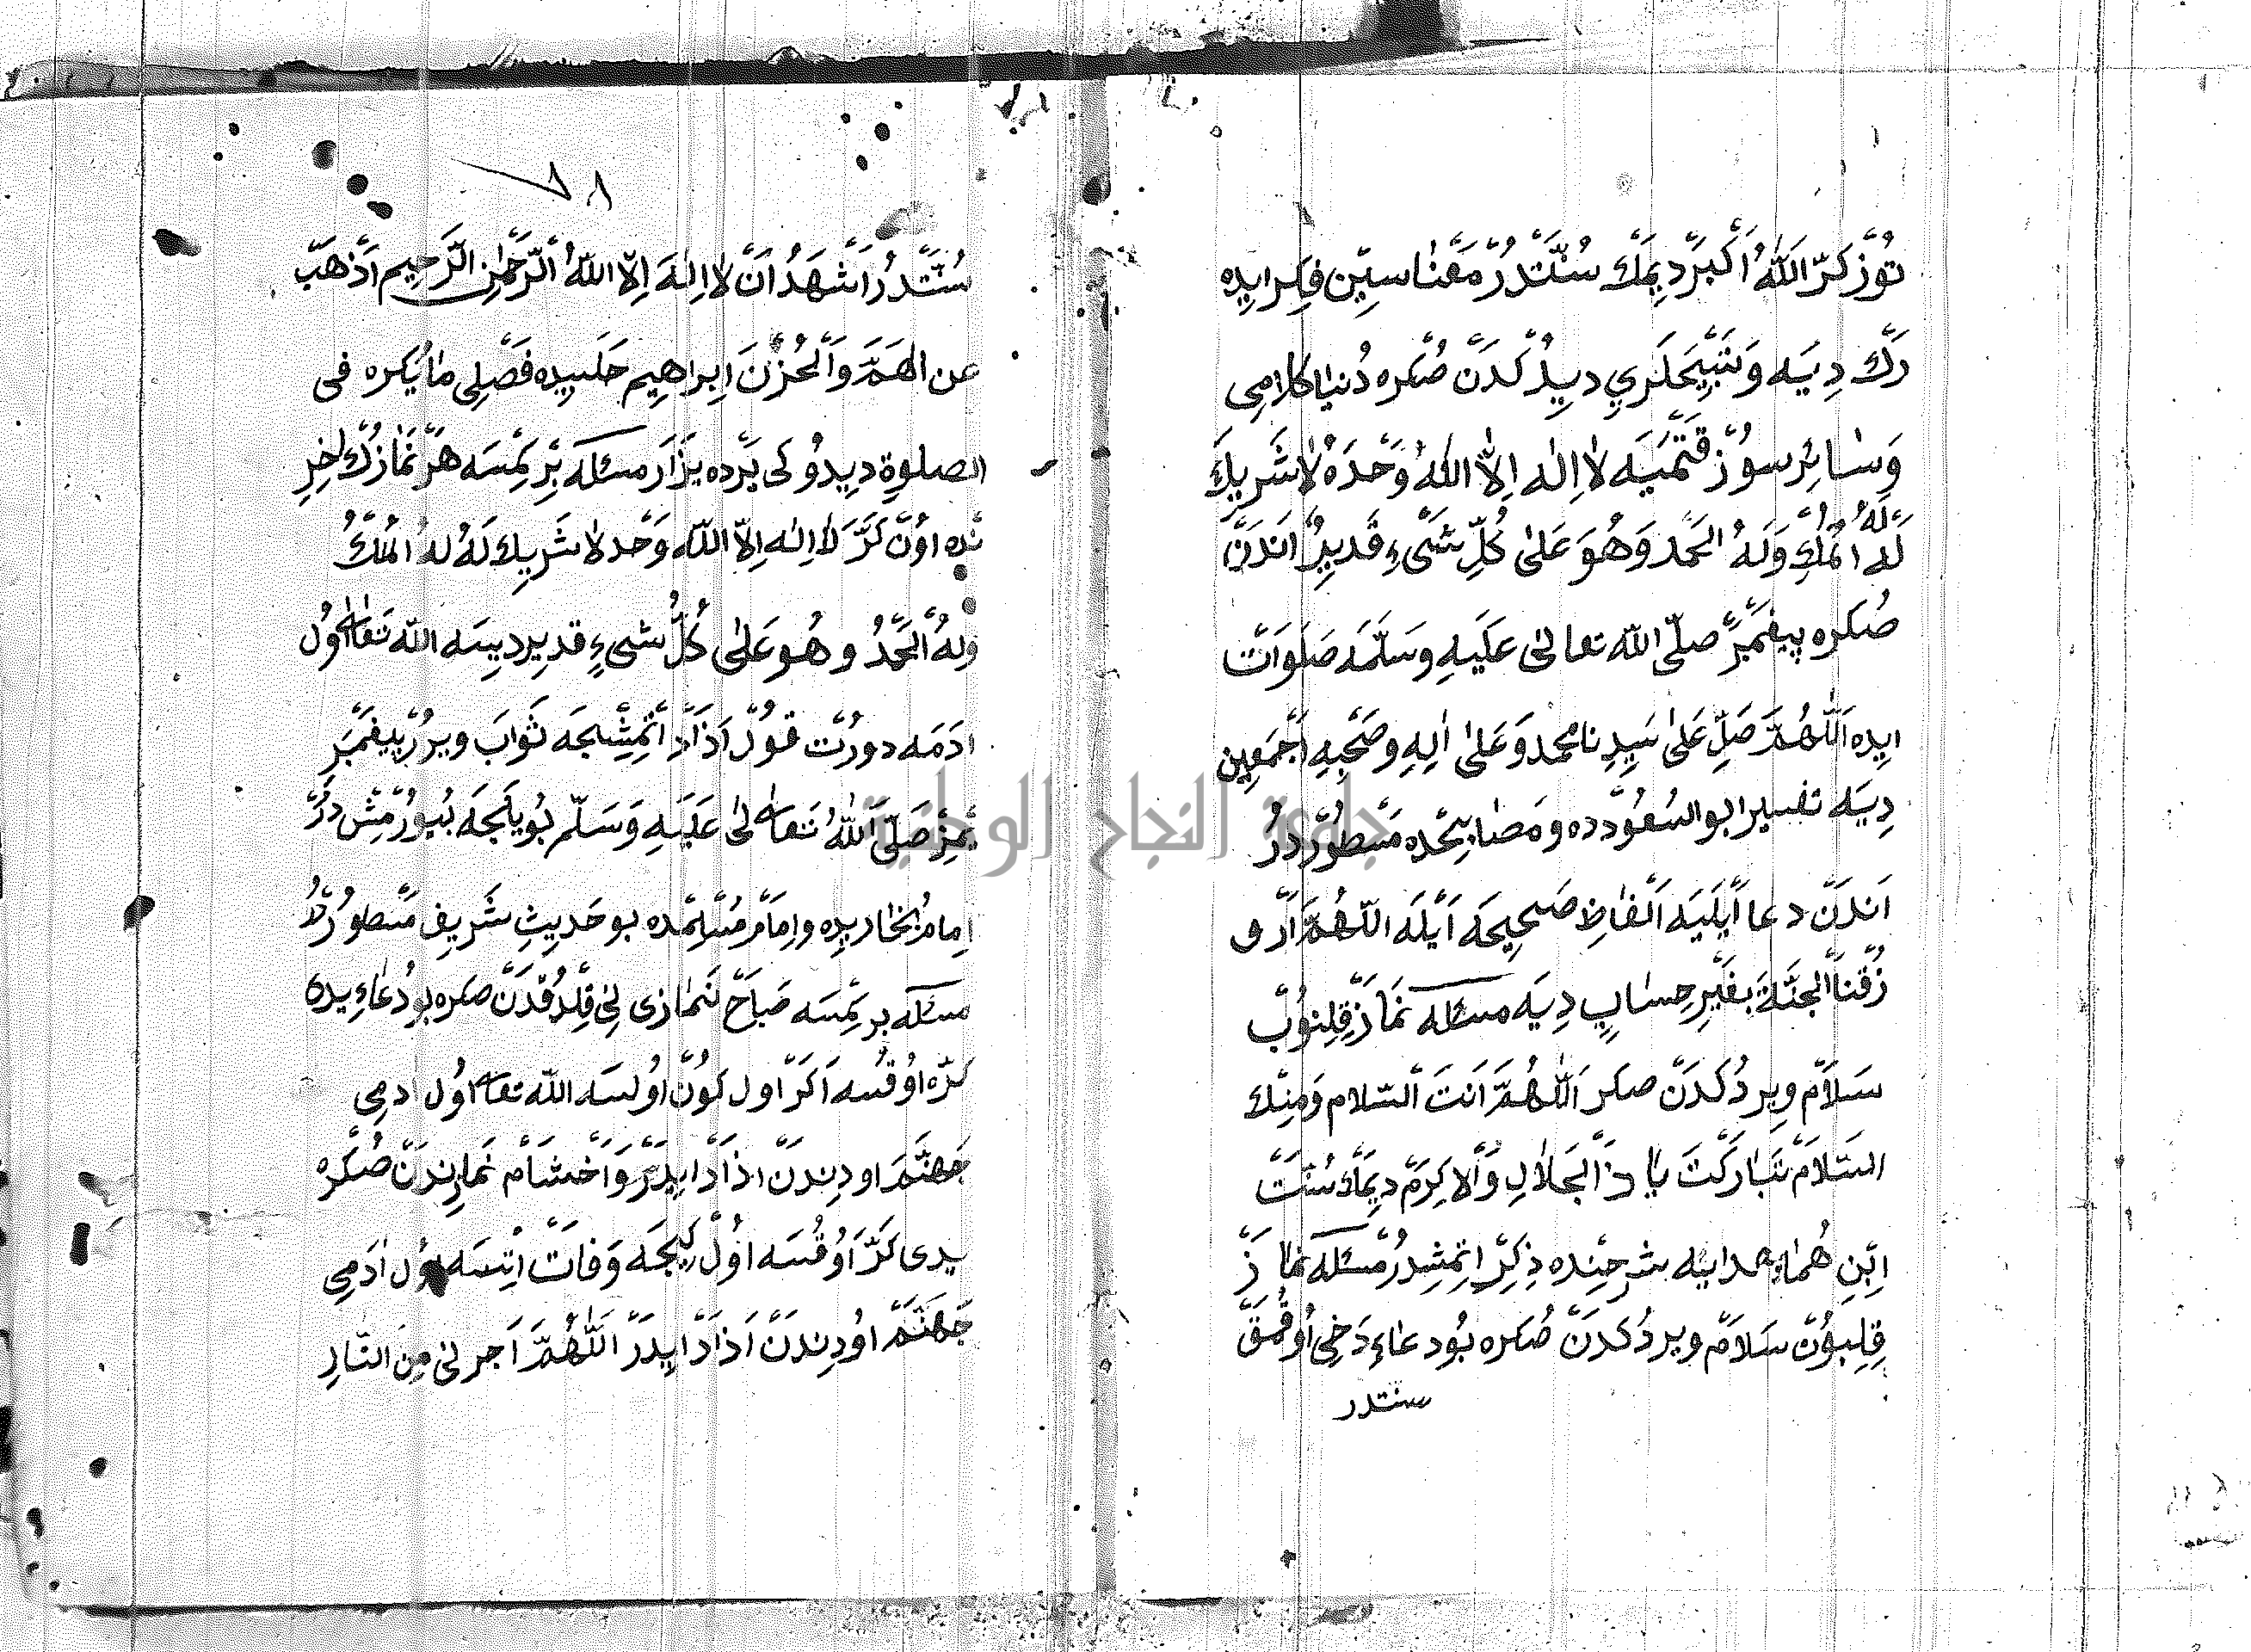 توز كرّ اللّٰهُ اَكْبَرْ ديمك سُنّتدُرْ مَعْناسين فِكر ايده
رك دِيَه وَتَسْبِيحلَري ديدكدَنْ صُكره دُنيا كلامى
وَسائر سوز قتميَه لا اله اِلّا اللّٰه وَحْدَهُ لا شَريكَ
لَهُ لَهُ المُلْكُ وَلَهُ الحَمْد وَهُوَ عَلىٰ كُلِّ شَىْءٍ قَديرٌ اَندَنْ
صُكره پيغمبرْ صلّى اللّه تعالىٰ عَلَيهِ وسَلّمَه صَلَوَاتْ
ايده اَللّٰهُمَّ صَلِّ عَلىٰ سَيِدِنا محمد وَعَلىٰ اٰلِهِ وصَحْبِهِ اَجْمَعين
دِيَه تفسير ابو السُعُوددده ومَصابيحْده مَسْطُورْ دُرْ
اَندَنْ دعا اَيْلَيَه اَلْفاظِ صَحيحَه اَيْلَه اللّهُمَّ اَرْ
زُقْنا اَلجَنَّةَ بِغَيرِ حِسابٍ دِيَه مسئله نمازْ قِلنوبْ
سَلاَمْ ويردُكدَنْ صكر اَللّٰهُمَّ اَنتَ اَلسّلام وَمِنك
السَلاَمْ تَبَارَكْتَ يَا ذَ اَلجَلاٰلِ وَاْلاكِرَمْ ديمَك سُنّتْ
اِبْنِ هُمام هدايه شرحِنده ذِكِرْ اِتمِشدُرْ مسئله نمازْ
قِلِبُونْ سَلاَمْ ويردُكدَنْ صُكره بُو دعاءِ دَخِى اُوقُمَقْ
سنتدر
٧١
سُنّتدُرْ اَشْهَدُ اَنْ لا اِلٰهَ اِلّا اللّٰهُ اَلرّحْمٰنِ الرَّحيم اَذْهَبْ
عن الهَمَّ وَاَلْحُزْنَ اِبراهيم حَلَبيده فَصْلِى مايُكره فى
الصلوةِ ديدُوكى يَرْده يَزَار مسئله بِرْ كِمْسَه هَرْ نَمازُكْ اخِرِ
نْده اوُنْ كَرَّ لا اِلٰه اِلّا اللّٰه وَحْد لا شَريك لَهُ لهُ المُلْكُ
ولهُ الحَمْدُ وهُوَ عَلىٰ كُلّ شىءٍ قدير ديسَه اللّه تَعالى اوُل
ادَمَه دورْت قول اَذَاد اَتمِشْجَه ثَواب ويرُرْ پيغمبَر
يمزْ صَلّى اَللّٰهُ تَعالىٰ عَلَيهِ وَسَلّم بُويلَجَه بُيورْمِشْ دُرْ
اِمامُ بخاريده واِمَامْ مُسْلِمْده بو حَديثِ شَريف مَسطورْدُرْ
مسئله بر كِمْسَه صَباَحْ نَمازى نِى قِلدُقدَنْ صكره بو دُعاءِ يدى
كرّه اوُقُسه اَكَرْ اول كونْ اوُلسَه اللّه تعالى اوُل ادمى
جَهنّم اودِندَنْ اذاَدْ ايدَرْ وَاَخشام نَمازِندَنْ صُكره
يدى كَرّ اوُقُسَه اوُلْ كيجَه وَفاتْ اتِسَه اوُل ادَمِى
جَهَنّم اوُدِندَنْ اَذاَدْ ايدَرْ اَللّٰهُمَّ اَجرنى مِنَ النّارِ